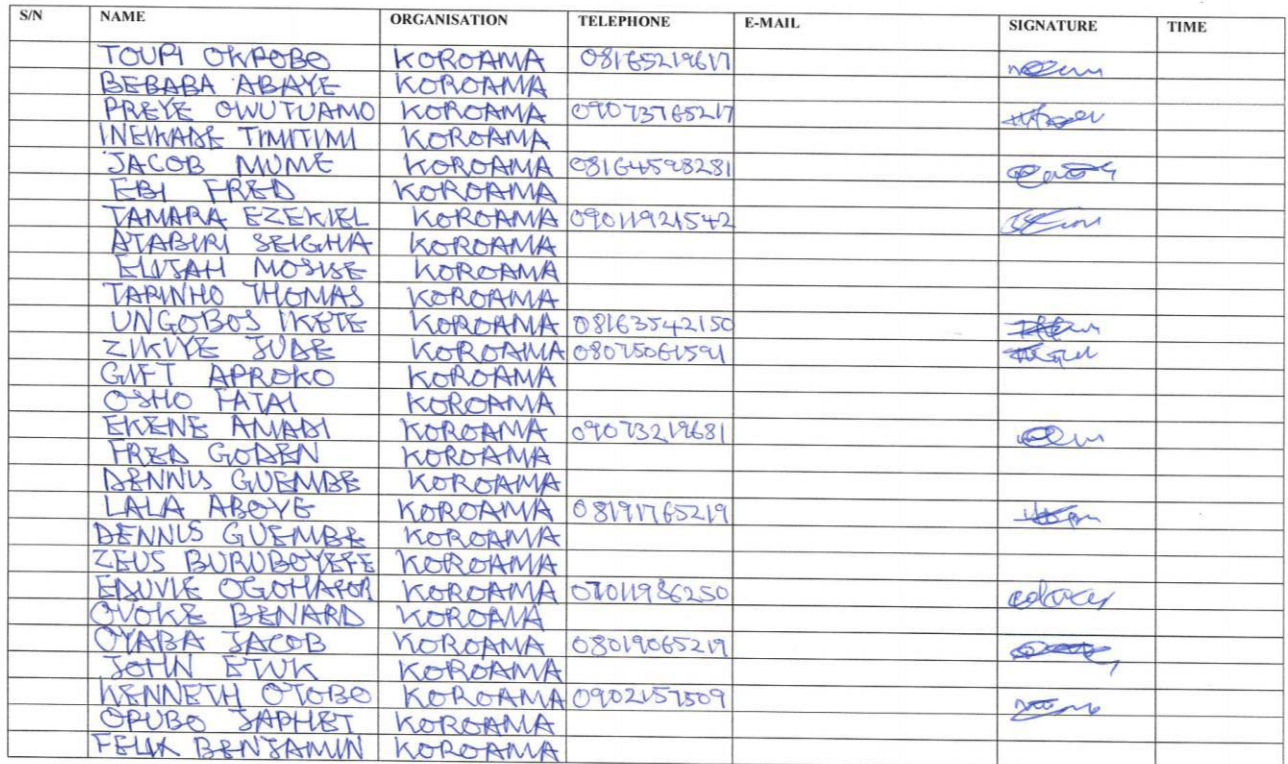 S/N NAME ORGANISATION TELEPHONE E-MAIL SIGNATURE TIME
TOUPI OKPOBO KOROAMA 08165219617
BEBABA ABAYE KOROAMA
PREYE OWUTUAMO KOROAMA 09073765217
INEIKADE TIMITIMI KOROAMA
JACOB MUME KOROAMA 08164598281
EBI FRED KOROAMA
TAMARA EZEKIEL KOROAMA 09011921542
ATABIRI SEIGHA KOROAMA
ELIJAH MOSISE KOROAMA
TARINHO THOMAS KOROAMA
UNGOBOS IKETE KOROAMA 08163542150
ZIKIYE JUDE KOROAMA 08075061591
GIFT APROKO KOROAMA
OSHO FATAI KOROAMA
EKENE AMADI KOROAMA 09073219681
FRED GODEN KOROAMA
DENNIS GUEMBE KOROAMA
LALA ABOYE KOROAMA 08191765219
DENNIS GUEMBE KOROAMA
ZEUS BURUBOYEFE KOROAMA
EDUVIE OGOHAFOR KOROAMA 07011986250
OVOKE BENARD KOROAMA
OYABA JACOB KOROAMA 08019065219
JOHN ETUK KOROAMA
KENNETH OTOBO KOROAMA 0902157509
OPUBO JAPHET KOROAMA
FELIX BENJAMIN KOROAMA